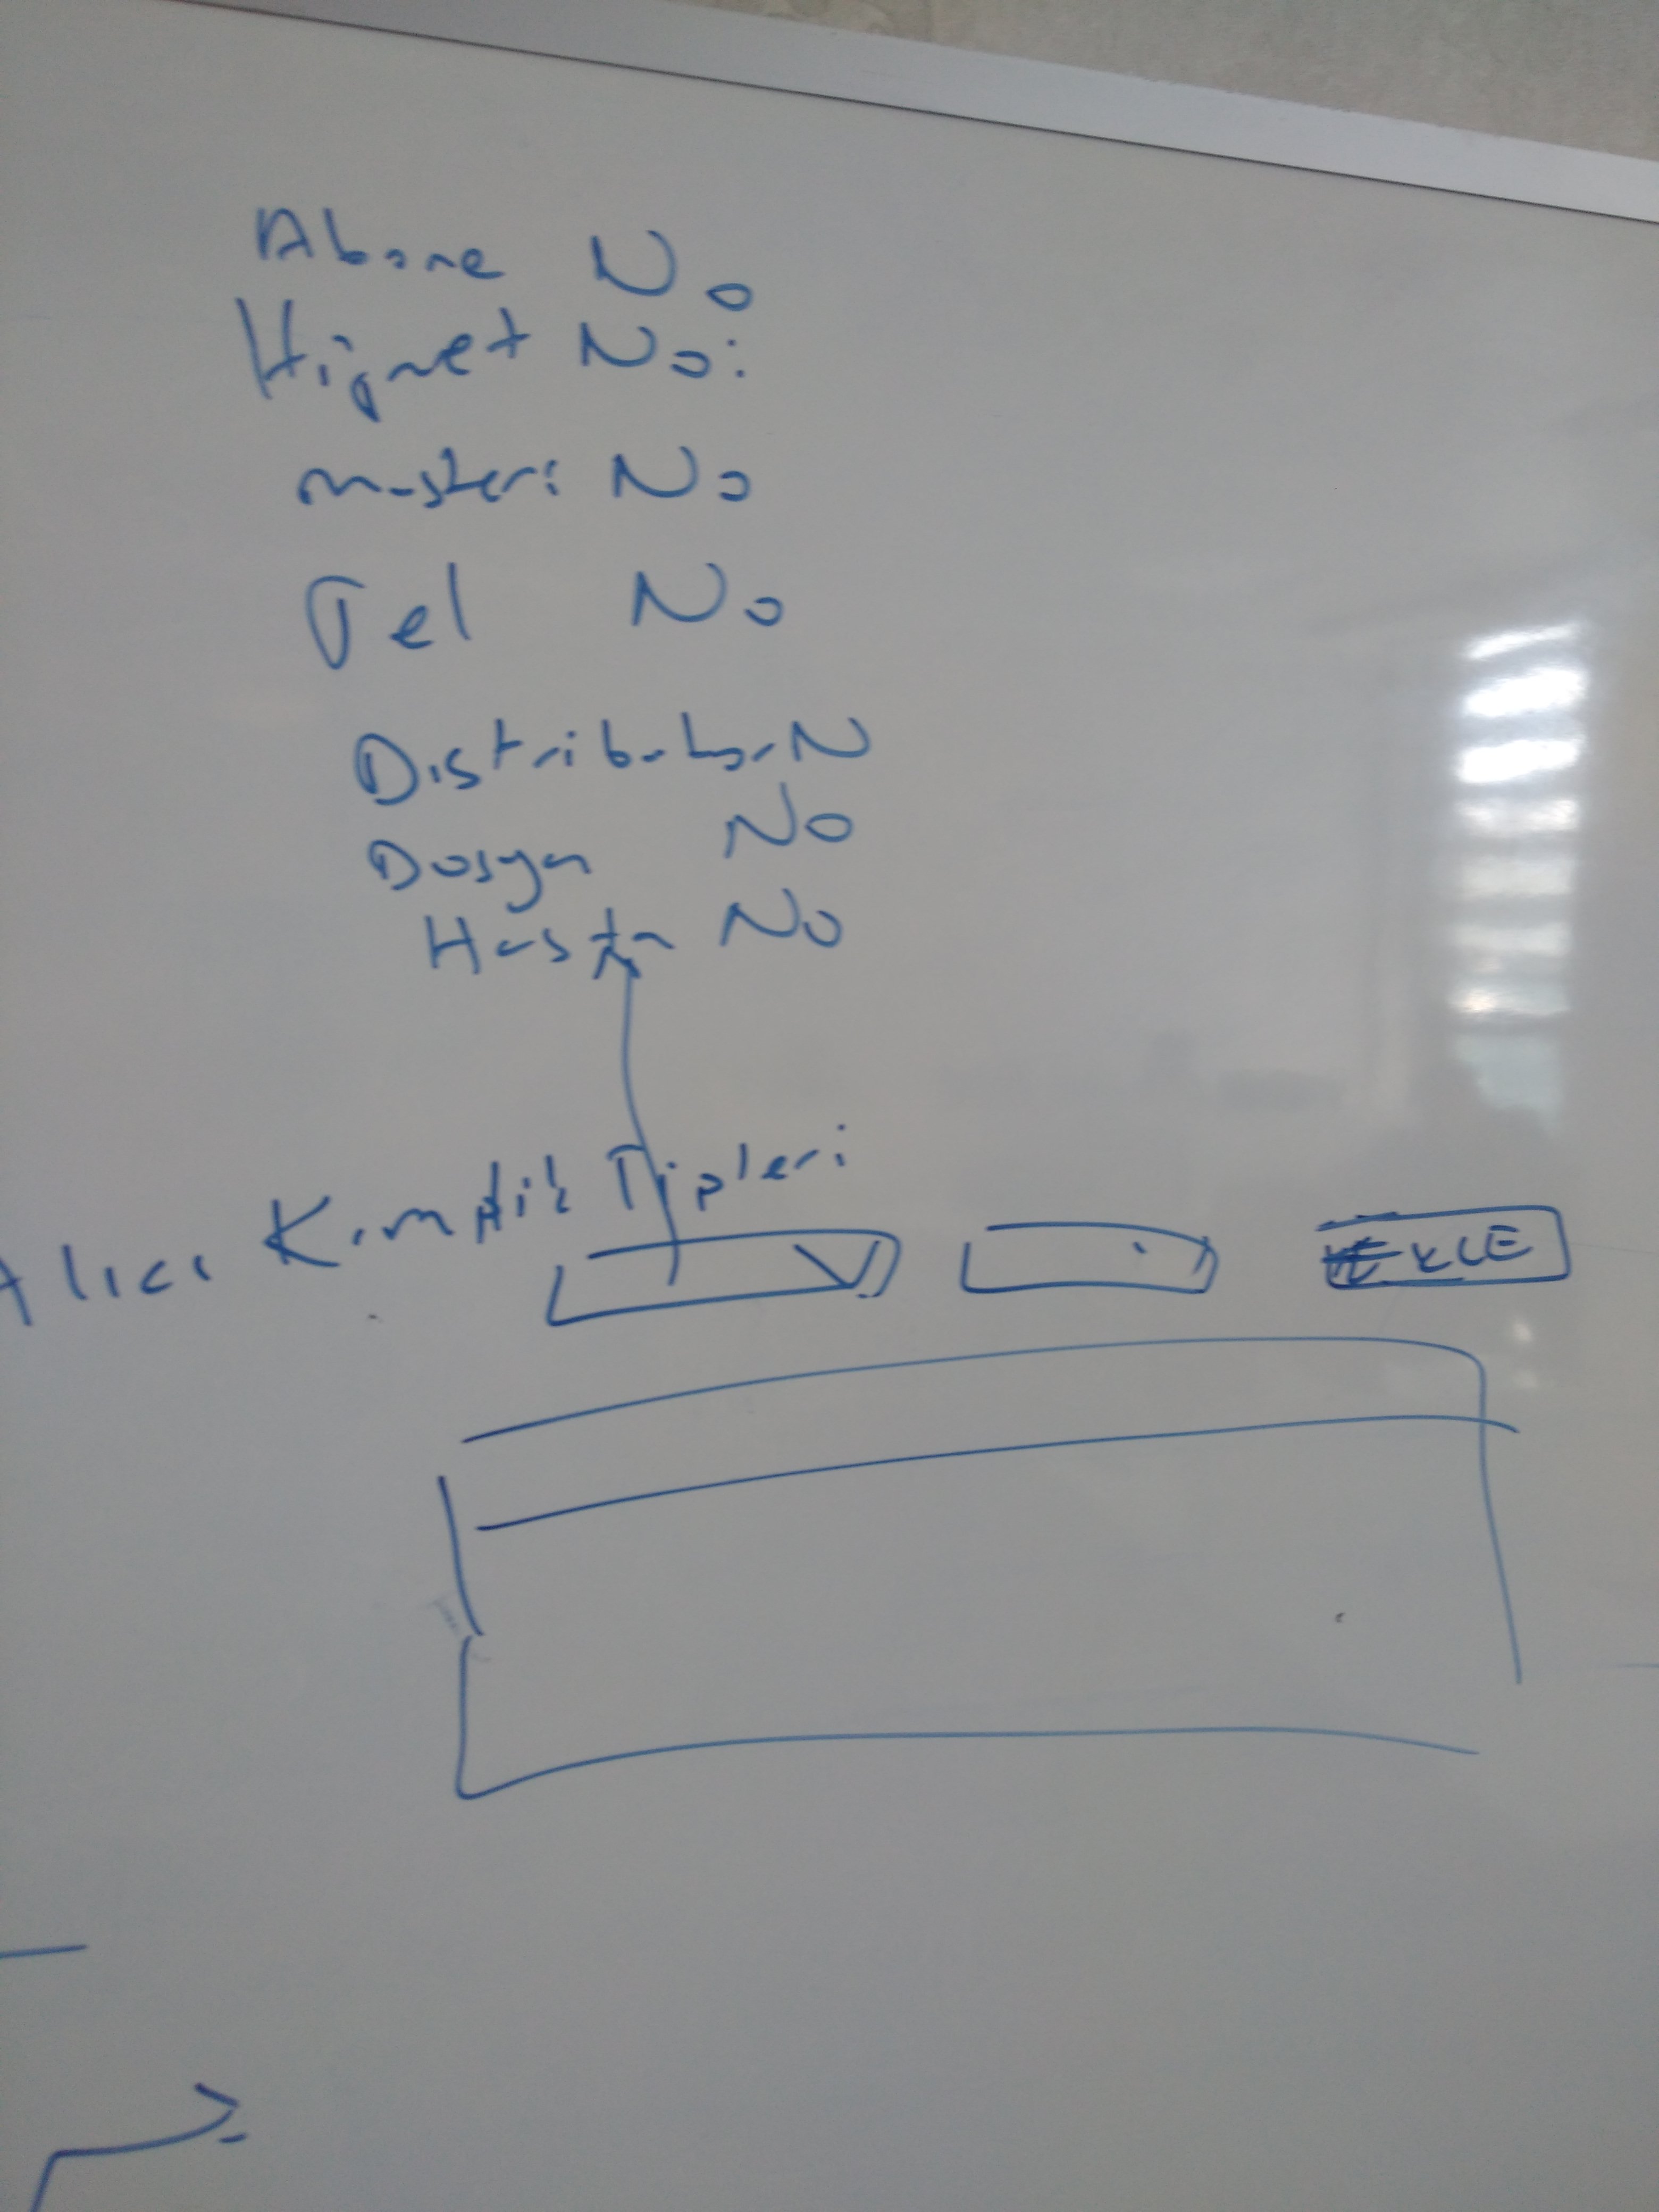 Abone No
Hizmet No:
Musteri No
Tel No
Distributor N
Dosya No
Hasta No
Alıcı Kimlik Tipleri
EKLE